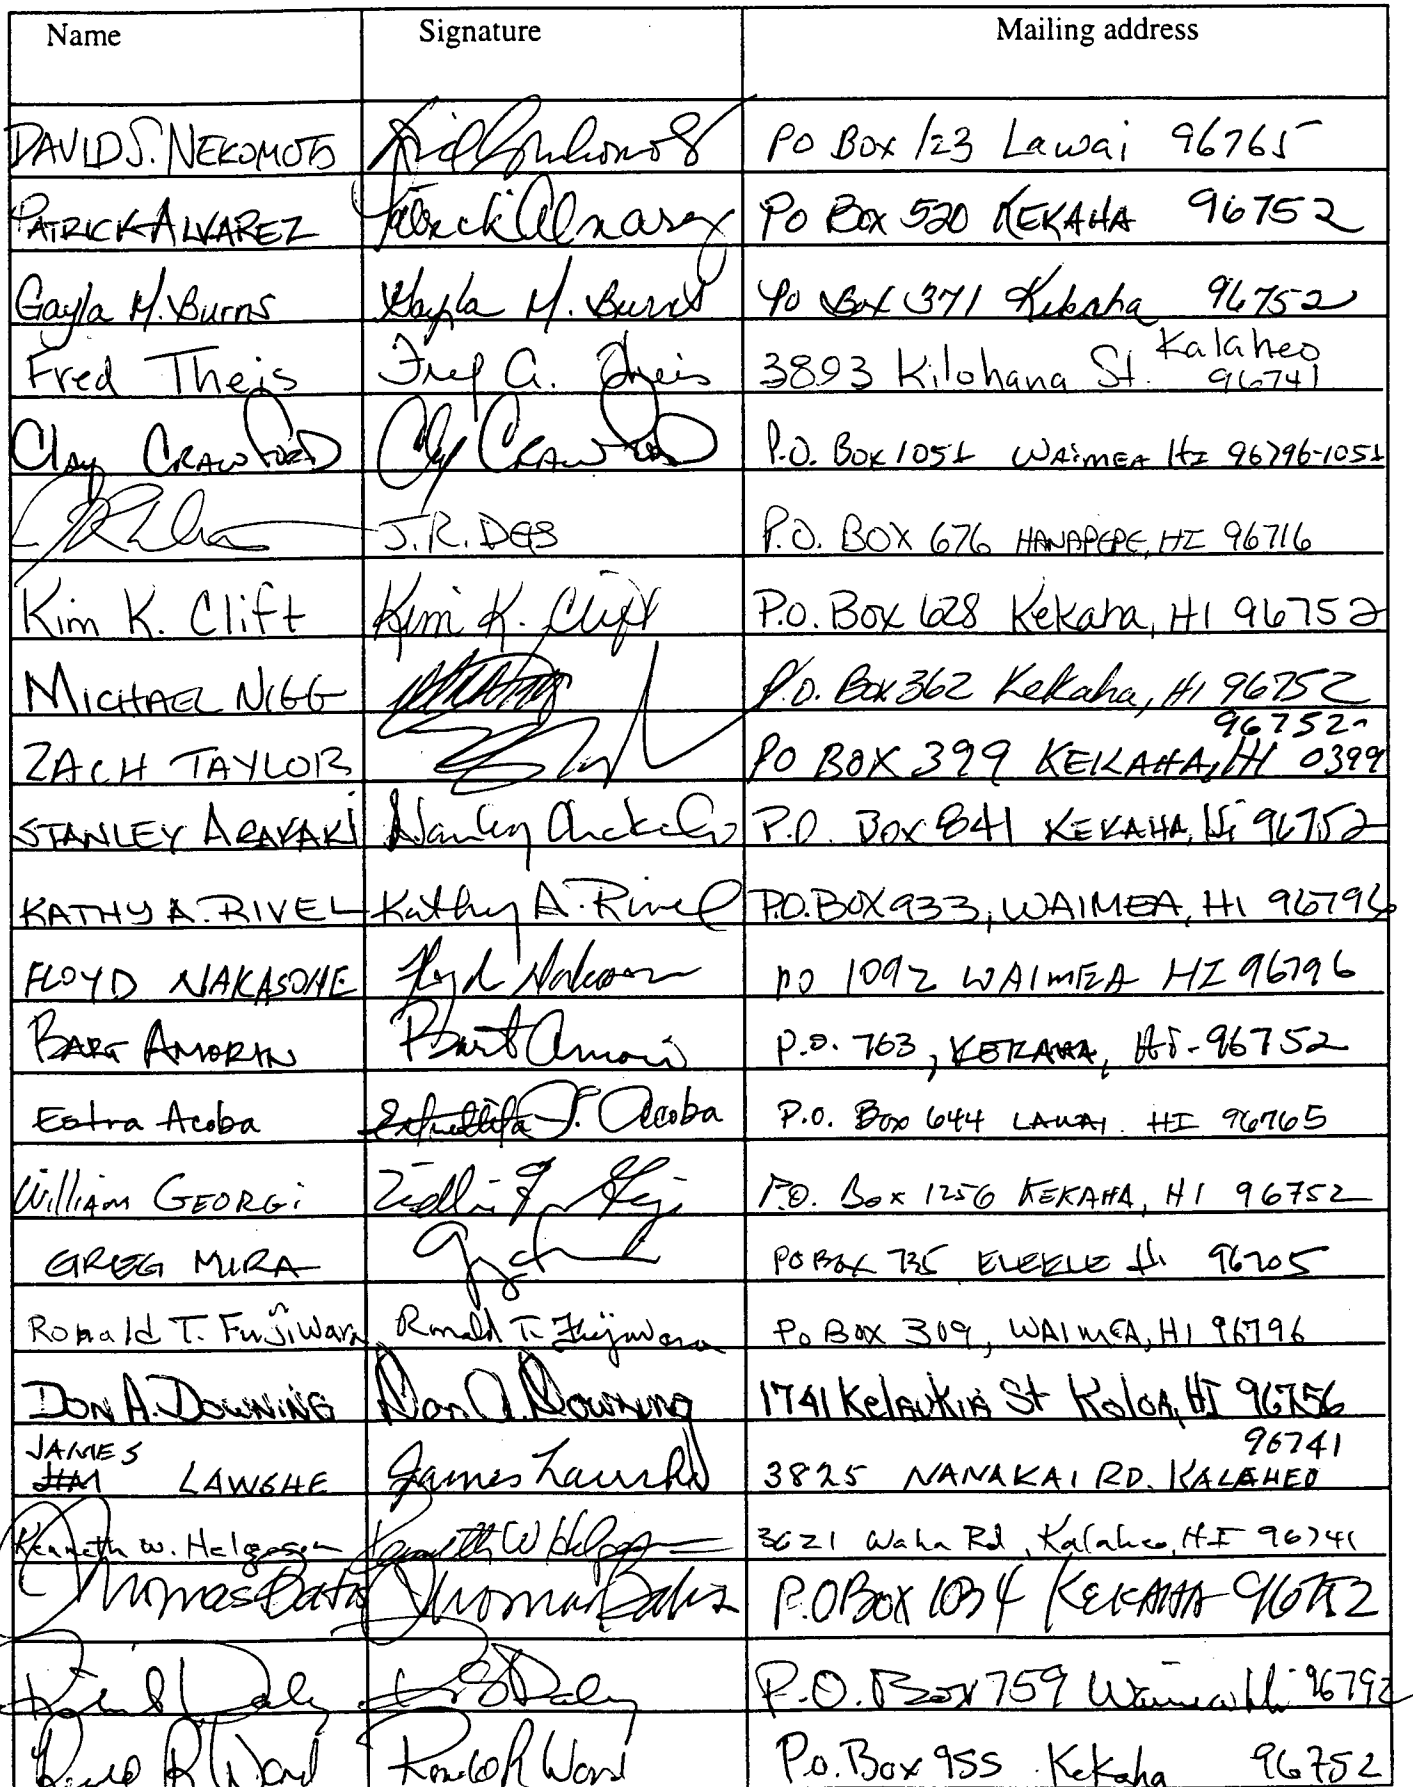 Name Signature Mailing address
DAVID S. NEKOMOTO PO Box 123 Lawai 96765
PATRICK ALVAREZ Patrick Alvarez PO Box 520 KEKAHA 96752
Gayla M. Burns Gayla M. Burns PO Box 371 Kekaha 96752
Fred Theis Fred A. Theis 3893 Kilohana St. Kalaheo 96741
Clay CRAWFORD Clay CRAWFORD P.O. Box 1051 WAIMEA HI 96796-1051
J.R. P.O. BOX 676 HANAPEPE, HI 96716
Kim K. Clift Kim K. Clift P.O. Box 628 Kekaha, HI 96752
MICHAEL NIGG P.O. Box 362 Kekaha, HI 96752
ZACH TAYLOR PO BOX 399 KEKAHA, HI 96752-0399
STANLEY ARAKAKI Stanley Arakaki P.O. Box 841 KEKAHA, Hi 96752
KATHY A. RIVEL Kathy A. Rivel P.O. BOX 933, WAIMEA, HI 96796
FLOYD NAKASONE Floyd Nakasone PO 1092 WAIMEA HI 96796
BART AMORIN Bart Amorin P.O. 763, KEKAHA, HI - 96752
Estra Acoba J. Acoba P.O. Box 644 LAWAI HI 96765
William GEORGi P.O. Box 1256 KEKAHA, HI 96752
GREG MIRA PO BOX 735 ELEELE HI 96705
Ronald T. Fujiwara Ronald T. Fujiwara Po Box 309, WAIMEA, HI 96796
DON A. DOWNING Don A. Downing 1741 Kelaukia St Koloa, HI 96756
JAMES LAWSHE James Lawshe 3825 NANAKAI RD. KALAHEO 96741
Kenneth W. Helgeson Kenneth W Helgeson 3621 Waha Rd, Kalaheo, HI 96741
Thomas Batis Thomas Batis P.O Box 1034 KEKAHA 96752
Daley Daley P.O. Box 759 Waimea Hi 96792
R Ward R Ward P.o. Box 955 Kekaha 96752